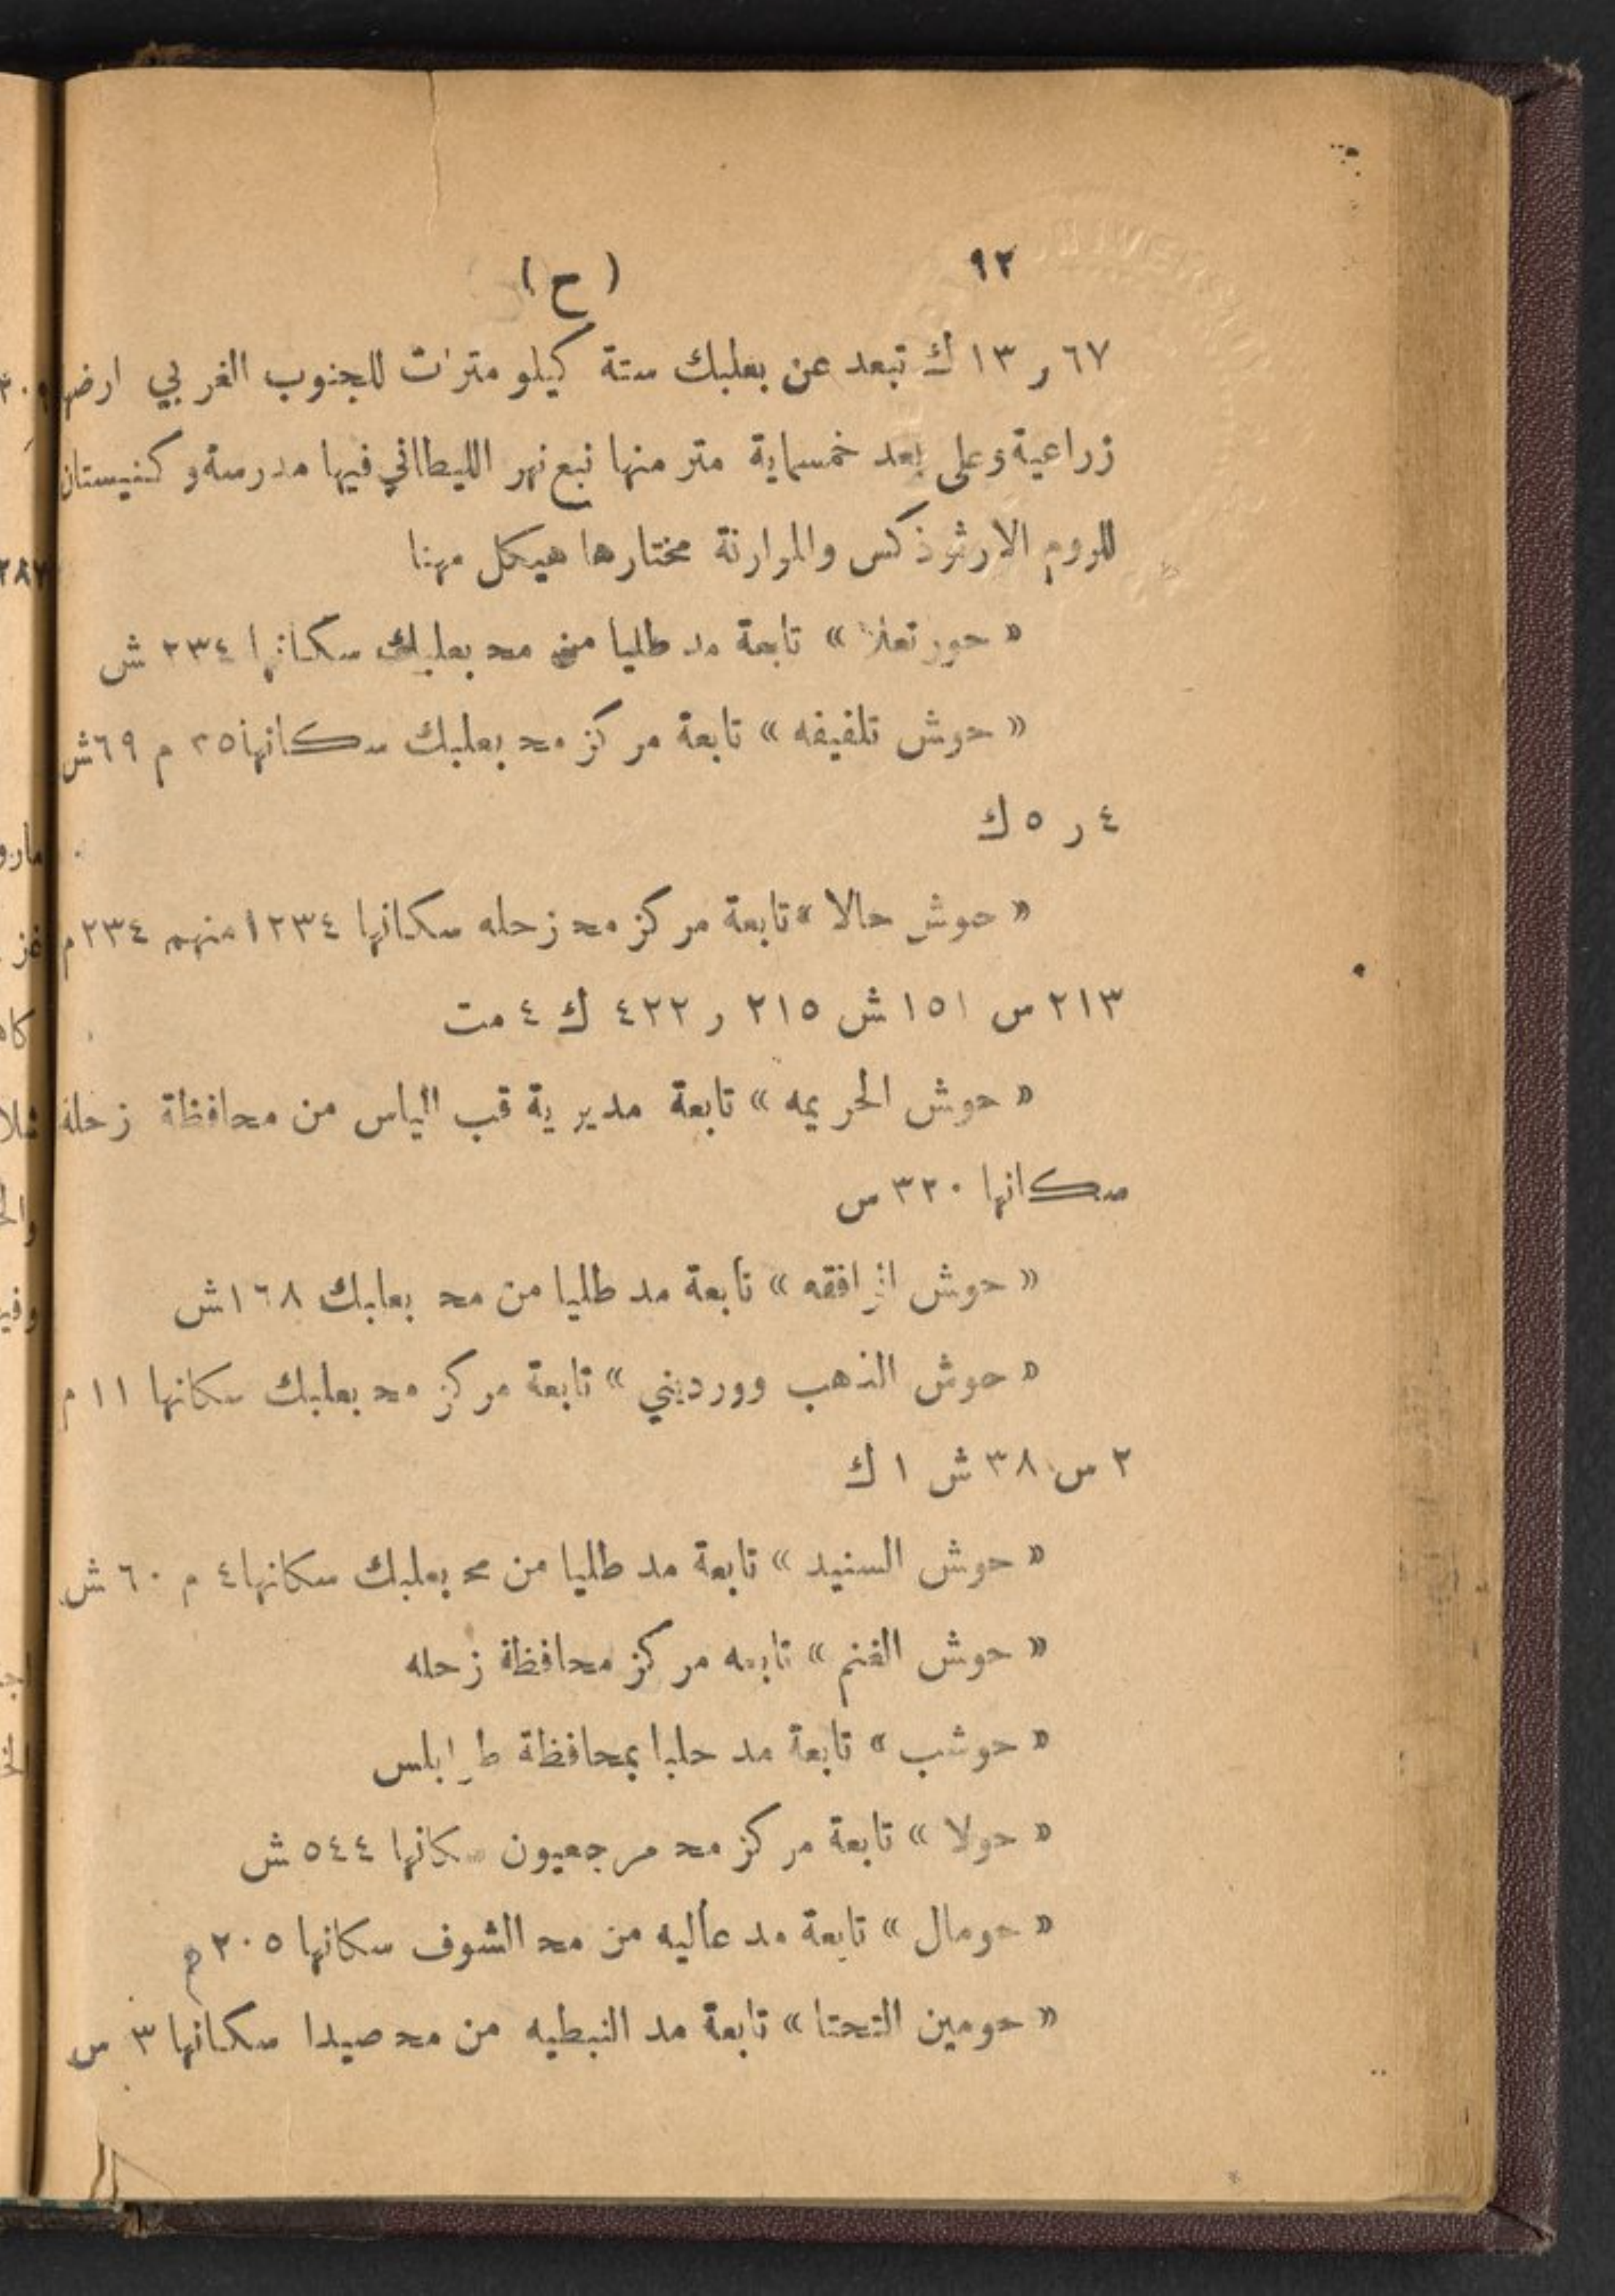 ٩٢ (ح)
٦٧ ر ١٣ ك تبعد عن بعلبك ستة كيلو مترات للجنوب الغربي ارضها
زراعية وعلى بعد خمسماية متر منها نبع نهر الليطاني فيها مدرسة وكنيستان
للروم الارثوذكس والموارنة مختارها هيكل مهنا
« حور تعلا » تابعة مد طليا من مح بعلبك سكانها ٢٣٤ ش
« حوش تلفيفه » تابعة مركز مح بعلبك سكانها ٢٥ م ٦٩ ش
٤ ر ٥ ك
« حوش حالا » تابعة مركز مح زحله سكانها ١٢٣٤ منهم ٢٣٤ م
٢١٣ س ١٥١ ش ٢١٥ ر ٤٢٢ ك ٤ مت
« حوش الحريمه » تابعة مديرية قب الياس من محافظة زحلة
سكانها ٣٢٠ س
« حوش الرافقه » تابعة مد طليا من مح بعلبك ١٦٨ ش
« حوش الذهب وورديني » تابعة مركز مح بعلبك سكانها ١١ م
٢ س ٣٨ ش ١ ك
« حوش السنيد » تابعة مد طليا من مح بعلبك سكانها ٤ م ٦٠ ش
« حوش الغنم » تابعه مركز محافظة زحله
« حوشب » تابعة مد حلبا بمحافظة طرابلس
« حولا » تابعة مركز مح مرجعيون سكانها ٥٤٤ ش
« حومال » تابعة مد عاليه من مح الشوف سكانها ٢٠٥ م
« حومين التحتا » تابعة مد النبطيه من مح صيدا سكانها ٣ س